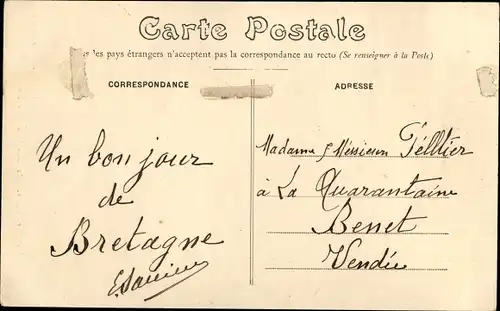 Carte Postale
les pays étrangers n'acceptent pas la correspondance au recto (Se renseigner à la Poste)
CORRESPONDANCE
Un bonjour
de
Bretagne
ADRESSE
Madame & Méssieurs Télltier
à La Quarantaine
Benet
Vendée